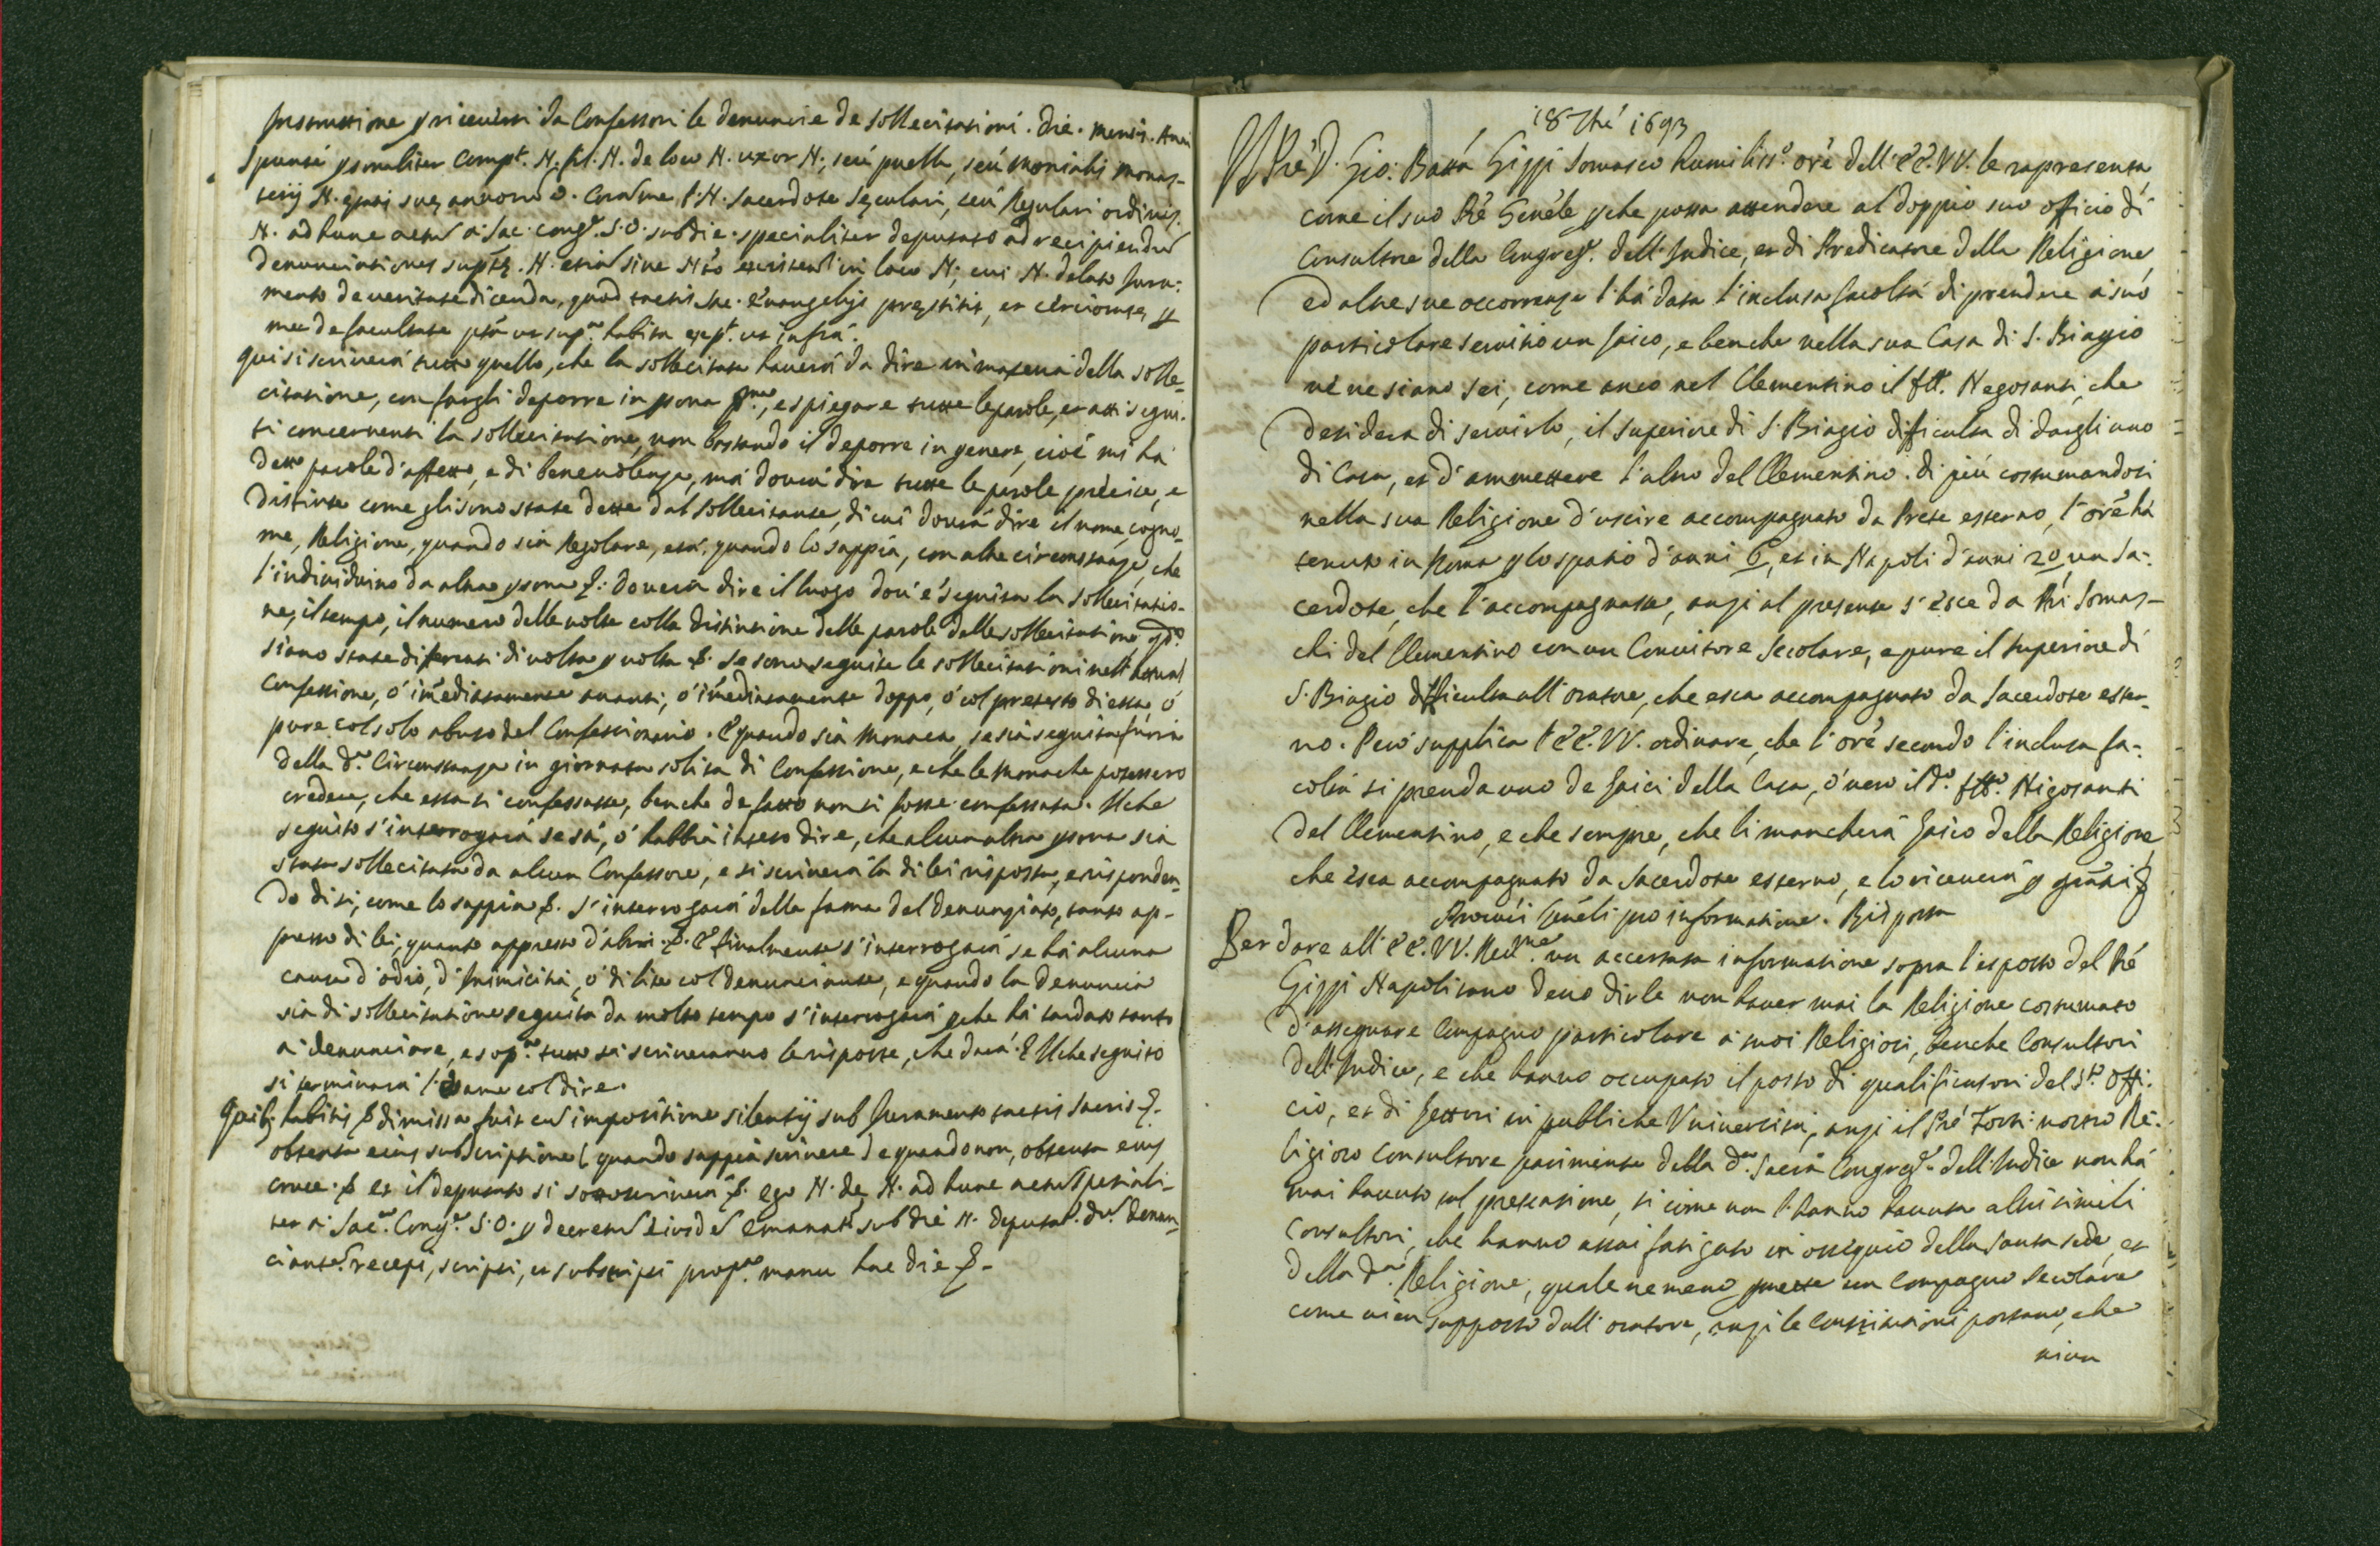 Instruttione p riceversi da Confessori le denuncie de sollecitationi. Die. Mensis. Anni
Sponte psonaliter compt. N. fil. N. de loco N. uxor N., seu puella, seu Monialis Monas-
terij N. etatis sue annorum  . Coram me P. N. Sacerdote Seculari, seu Regulari ordinis.
N. ad hunc actum a Sac. Congne. S.O. sub die. specialiter deputato ad recipiendum
denunciationes suptas. N. etiam sine Nto existentem in loco N; cui N. delato Jura-
mento de veritate dicenda, quod tactis SSe. Evangelijs prestitit, et certiorata p
me de facultate pta ut supra. habita expt. ut infrà.
Qui si scriverà tutto quello, che la sollecitata haverà da dire in materia della solle-
citatione, con fargli deporre in pona pma., e spiegare tutte le parole, et atti segui-
ti concernenti la sollecitatione, non bastando il deporre in genere, cioè mi hà
detto parole d'affetto, e di benevolenza, mà dovrà dire tutte le parole precise, e
distinte come gli sono state dette dal sollecitante, di cui dovrà dire il nome, cogno-
me, Religione, quando sia Regolare, età, quando lo sappia, con altre circonstanze, che
l'individuino da altra psona &. Doverà dire il luogo dov'è seguita la sollecitatio-
ne, il tempo, il numero delle volte colla distintione delle parole delle sollecitationi, qdo.
siano state differenti di volta p volta &. Se sono seguite le sollecitationi nell'attual
Confessione, ò imediatamente avanti, ò imediatamente doppo, ò col pretesto di essa, ò
pure col solo abuso del Confessionario. E quando sia Monaca, se sia seguita fuori
della da. Circonstanza in giornata solita di Confessione, e che le Monache potessero
credere, che essa si confessasse, benche de facto non si fosse confessata. Il che
seguito s'interrogarà se sà, ò habbia inteso dire, che alcun altra psona sia
stata sollecitata da alcun Confessore, e si scriverà la di lei risposta, e risponden-
do di si, come lo sappia &. S'interrogarà della fama del denunziato, tanto ap-
presso di lei, quanto appresso d'altri &. E finalmente s'interrogarà se hà alcuna
causa d'odio, d'Inimicitia, ò di lite col denunciante, e quando la denuncia
sia di sollecitatione seguita da molto tempo s'interrogarà pche hà tardato tanto
a denunciare, e sopra. tutto si scriveranno le risposte, che darà. E il che seguito
si terminarà l'esame col dire.
Quib. habitis & dimissa fuit cum impositione silentij sub Juramento tactis sacris &.
obtenta eius subscriptione (quando sappia scrivere) e quando non, obtenta eius
cruce. & et il deputato si sottoscriverà &. ego N. de N. ad hunc actum spetiali-
ter a Sac. Congne. S.O. p decretum eiusdem emanat. sub die N. deputat. dm. denun-
ciantem. recepi, scripsi, et subscripsi propria. manu hac die &.
18 7bre 1693
Il Prè D. Gio: Batta Gizzi Somasco humiliss.o orè dell'EE.VV. le rapresenta
come il suo Prè Genèle pche possa attendere al doppio suo officio di
Consultore della Congregne. dell'Indice, et di Predicatore della Religione
ed altre sue occorrenze l'hà data l'inclusa facoltà di prendere à suo
particolare servitio un laico, e benche nella sua Casa di S. Biagio
ve ne siano sei, come anco nel Clementino il fttlo. Negosanti, che
desidera di servirlo, il superiore di S. Biagio difficulta di dargli uno
di Casa, et d'ammettere l'altro del Clementino. di più costumandosi
nella sua Religione d'uscire accompagnato da Prete esterno, l'orè hà
tenuto in Roma p lo spatio d'anni 6, et in Napoli d'anni 20 un Sa-
cerdote, che l'accompagnasse, anzi al presente s'esce da Pri Somas-
chi del Clementino con un Convittore Secolare, e pure il superiore di
S. Biagio difficulta all'oratore, che esca accompagnato da Sacerdote ester-
no. Però supplica l'EE.VV. ordinare, che l'orè secondo l'inclusa fa-
coltà si prenda uno de laici della Casa, ò vero il do. fttlo. Nigosanti
del Clementino, e che sempre, che li mancherà laico della Religione
che esca accompagnato da Sacerdote esterno, e lo riceverà p gratia &
Procuri Genèli pro informatione. Risposta
Per dare all'EE.VV. Revme. un accertata informatione sopra l'esposto del Prè
Gizzi Napolitano devo dirle non haver mai la Religione costumato
d'assegnare Compagno particolare a suoi Religiosi, benche Consultori
dell'Indice, e che hanno occupato il posto di qualificatori del Sto. Offi-
cio, et di Lettori in publiche Università, anzi il Prè Torti nostro Re-
ligioso Consultore parimente della da. Sacra Congregne. dell'Indice non hà
mai havuto tal pretensione, si come non l'hanno havuta altri simili
Consultori, che hanno assai fatigato in ossequio della Santa sede, et
della da. Religione, quale ne meno pmette un compagno Secolare
come vien supposto dall'oratore, anzi le Constitutioni portano, che
niun